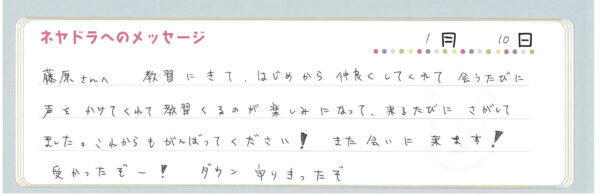 ネヤドラへのメッセージ
1月 10日
藤原さんへ 教習にきて、はじめから仲良くしてくれて 会うたびに
声をかけてくれて教習くるのが楽しみになって、来るたびに さがして
ました。これからもがんばってください! また会いに来ます!
受かったぞー! ダウン 乗りきったぞ